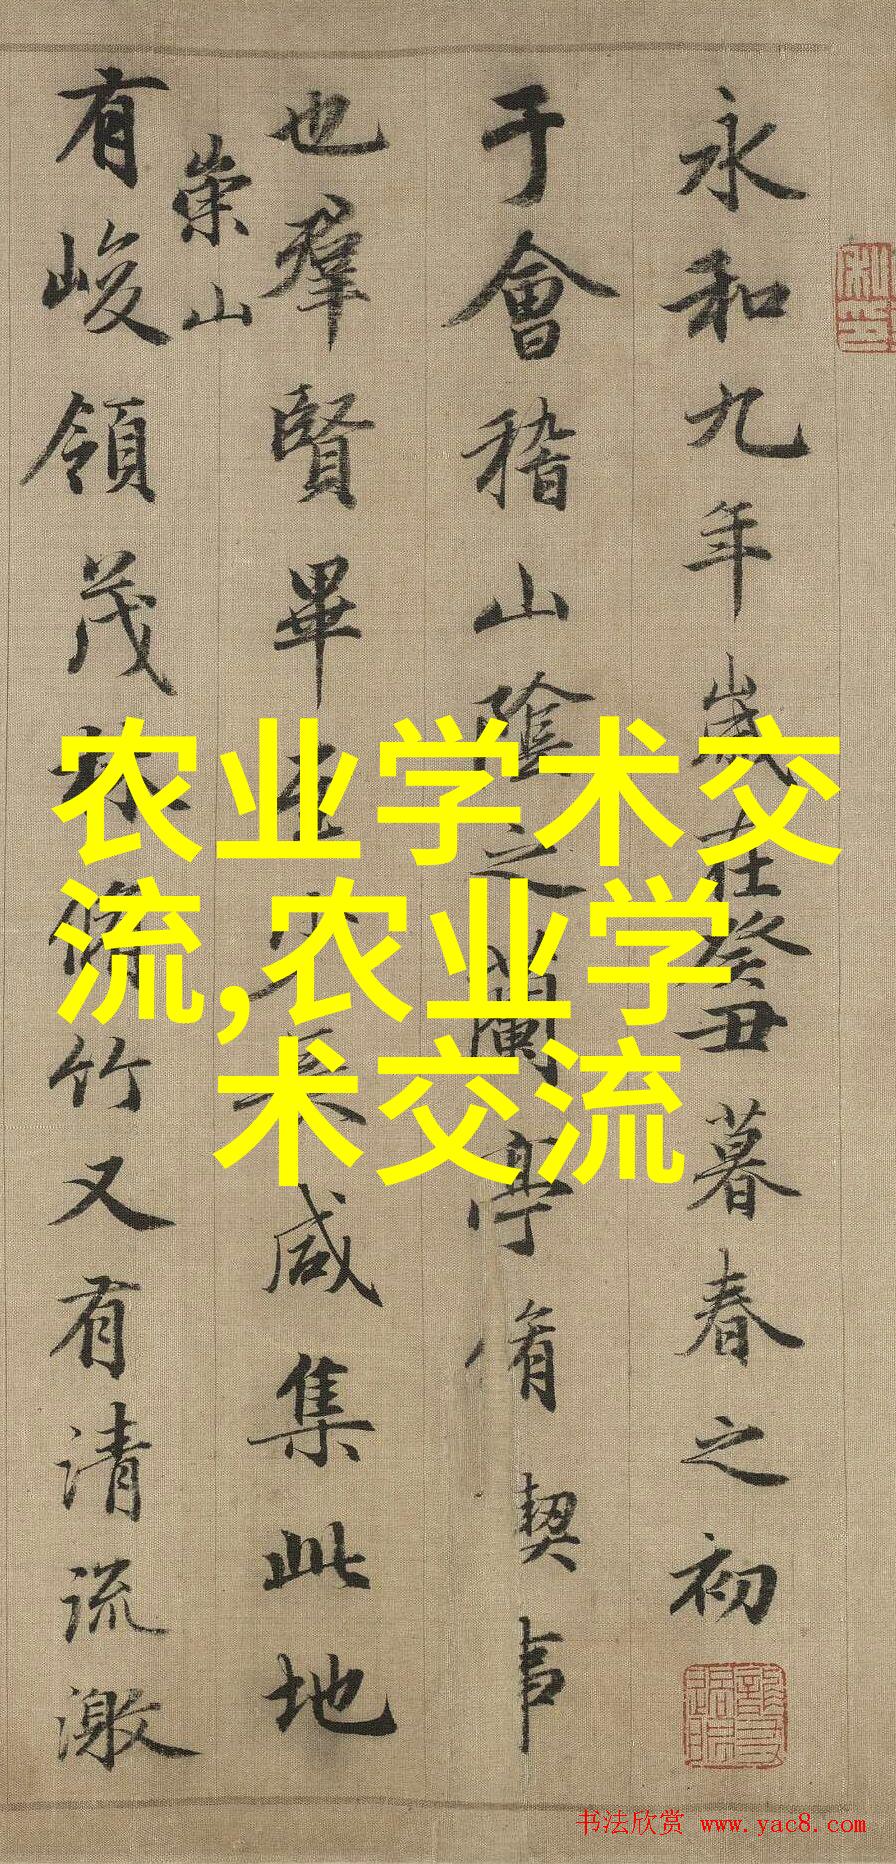 永和九年歲在癸丑暮春之初
于會稽山陰之蘭亭脩契事
也羣賢畢至少長咸集此地
崇山
有峻領茂林脩竹又有清流激
农业学术交
流,农业学
术交流
书法欣赏 www.yac8.com